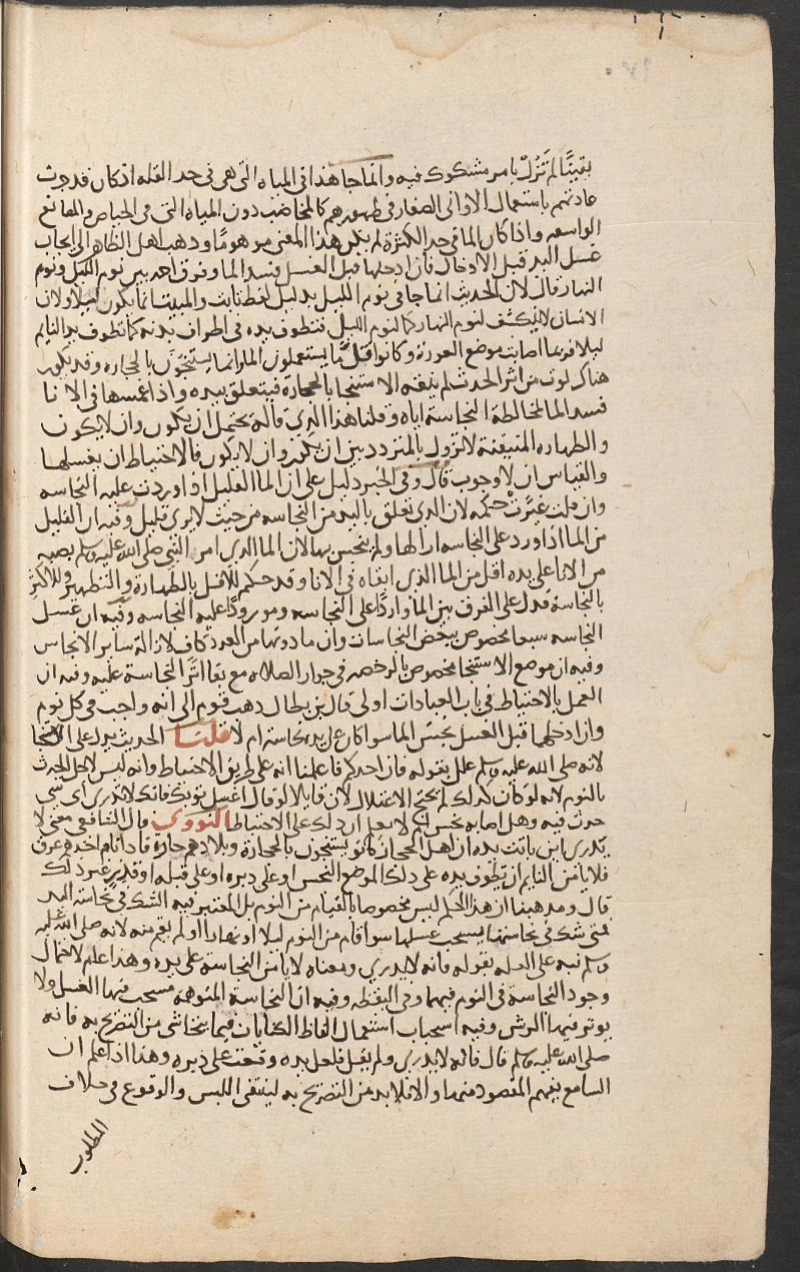 بيقينًا لم تَزُل بامر مشكوك فيه وانما جا هذا فى المياه التى هى فى حد القله اذ كان قد جرت
عادتهم باستعمال الاوانى الصغار فى طهورهم كالمخاضب دون المياه التى فى الحياض والمصانع
الواسعه واذا كان الما فى حد الكثرة لم يكن هذا المعنى موهومًا وذهب اهل الظاهر الى ايجاب
غسل اليد قبل الادخال فان ادخلها قبل الغسل فسد الما وفرق احمد بين نوم الليل ونوم
النهار قال لان الحديث انما جا فى نوم الليل بدليل لفظ باتت والمبيت انما يكون ليلا ولان
الانسان لا ينكشف لنوم النهار كما لنوم الليل فتطوف يده فى اطراف بدنه كما تطوف يد النايم
ليلا فربما اصابت موضع العورة وكانوا قلّ ما يستعملون الما انما يستنجون بالحجاره وقد يكون
هناك لوث من اثر الحدث لم ينقه الاستنجا بالحجارة فيتعلق بيده واذا غمسها فى الانا
فسد الما لمخالطة النجاسة اياه وقلنا هذا الذى قاله يحتمل ان يكون وان لا يكون
والطهاره المتيقنة لا تزول بالمتردد بين ان يكون وان لا يكون فالاحتياط ان يغسلها
والقياس ان لا وجوب قال وفى الخبر دليل على ان الما القليل اذا وردت عليه النجاسه
وان قلت غيّرت حكمه لان الذى تعلق باليد من النجاسه من حيث لا يرى قليل وفيه ان القليل
من الما اذا ورد على النجاسه ازالها ولم يتنجس بها لان الما الذى امر النبى صلى الله عليه وسلم بصبه
من الانا على يده اقل من الما الذى ابقاه فى الانا وقد حكم للاقل بالطهارة والتطهير وللاكثر
بالنجاسة فدل على الفرق بين الما واردًا على النجاسه ومورودًا عليه النجاسه وفيه ان غسل
النجاسه سبعا مخصوص ببعض النجاسات وان ما دونها من العدد كاف لازالة ساير الانجاس
وفيه ان موضع الاستنجا مخصوص بالرخصه فى جواز الصلاه مع بقا اثر النجاسة عليه وفيه ان
العمل بالاحتياط فى باب العبادات اولى قال بن بطال ذهب قوم الى انه واجب فى كل نوم
وان ادخلها قبل الغسل نجس الما سوا كان على يده نجاسة ام لا قلنا الحديث يدل على
لانه صلى الله عليه وسلم علل بقوله فان احدكم فاعلمنا انه على طريق الاحتياط وانه ليس لاجل الحدث
بالنوم لانه لو كان كذلك لم يحتج الاعتلال لان قايلا لو قال اغسل ثوبك فانك لا تدرى اى شى
حدث فيه وهل اصابه نجس لعلم ان ذلك على الاحتياط النووى قال الشافعى معنى لا
يدرى اين باتت يده ان اهل الحجاز كانو يستنجون بالحجارة وبلادهم حارة فاذا نام احدهم عرق
فلا يامن النايم ان تطوف يده على ذلك الموضع النجس او على دبره او على قبله او قذر غير ذلك
قال ومذهبنا ان هذا الحكم ليس مخصوصا بالقيام من النوم بل المعتبر فيه الشك فى نجاسة اليد
فمتى شك فى نجاستها يستحب غسلها سوا قام من النوم ليلا او نهارا او لم يقم منه لانه صلى الله عليه
وسلم نبه على العله بقوله فانه لا يدري ومعناه لا يامن النجاسة على يده وهذا عام لاحتمال
وجود النجاسة فى النوم فيهما وفى اليقظه وفيه ان النجاسة المتوهمه يستحب فيها الغسل ولا
يوثر فيها الرش وفيه استحباب استعمال الفاظ الكنايات فيما يتحاشى من التصريح به فانه
صلى الله عليه وسلم قال فانه لا يدرى ولم يقل فلعل يده وقعت على دبره وهذا اذا علم ان
السامع يفهم المقصود منها والا فلا بد من التصريح به لينتفى اللبس والوقوع فى خلاف
المطلوب